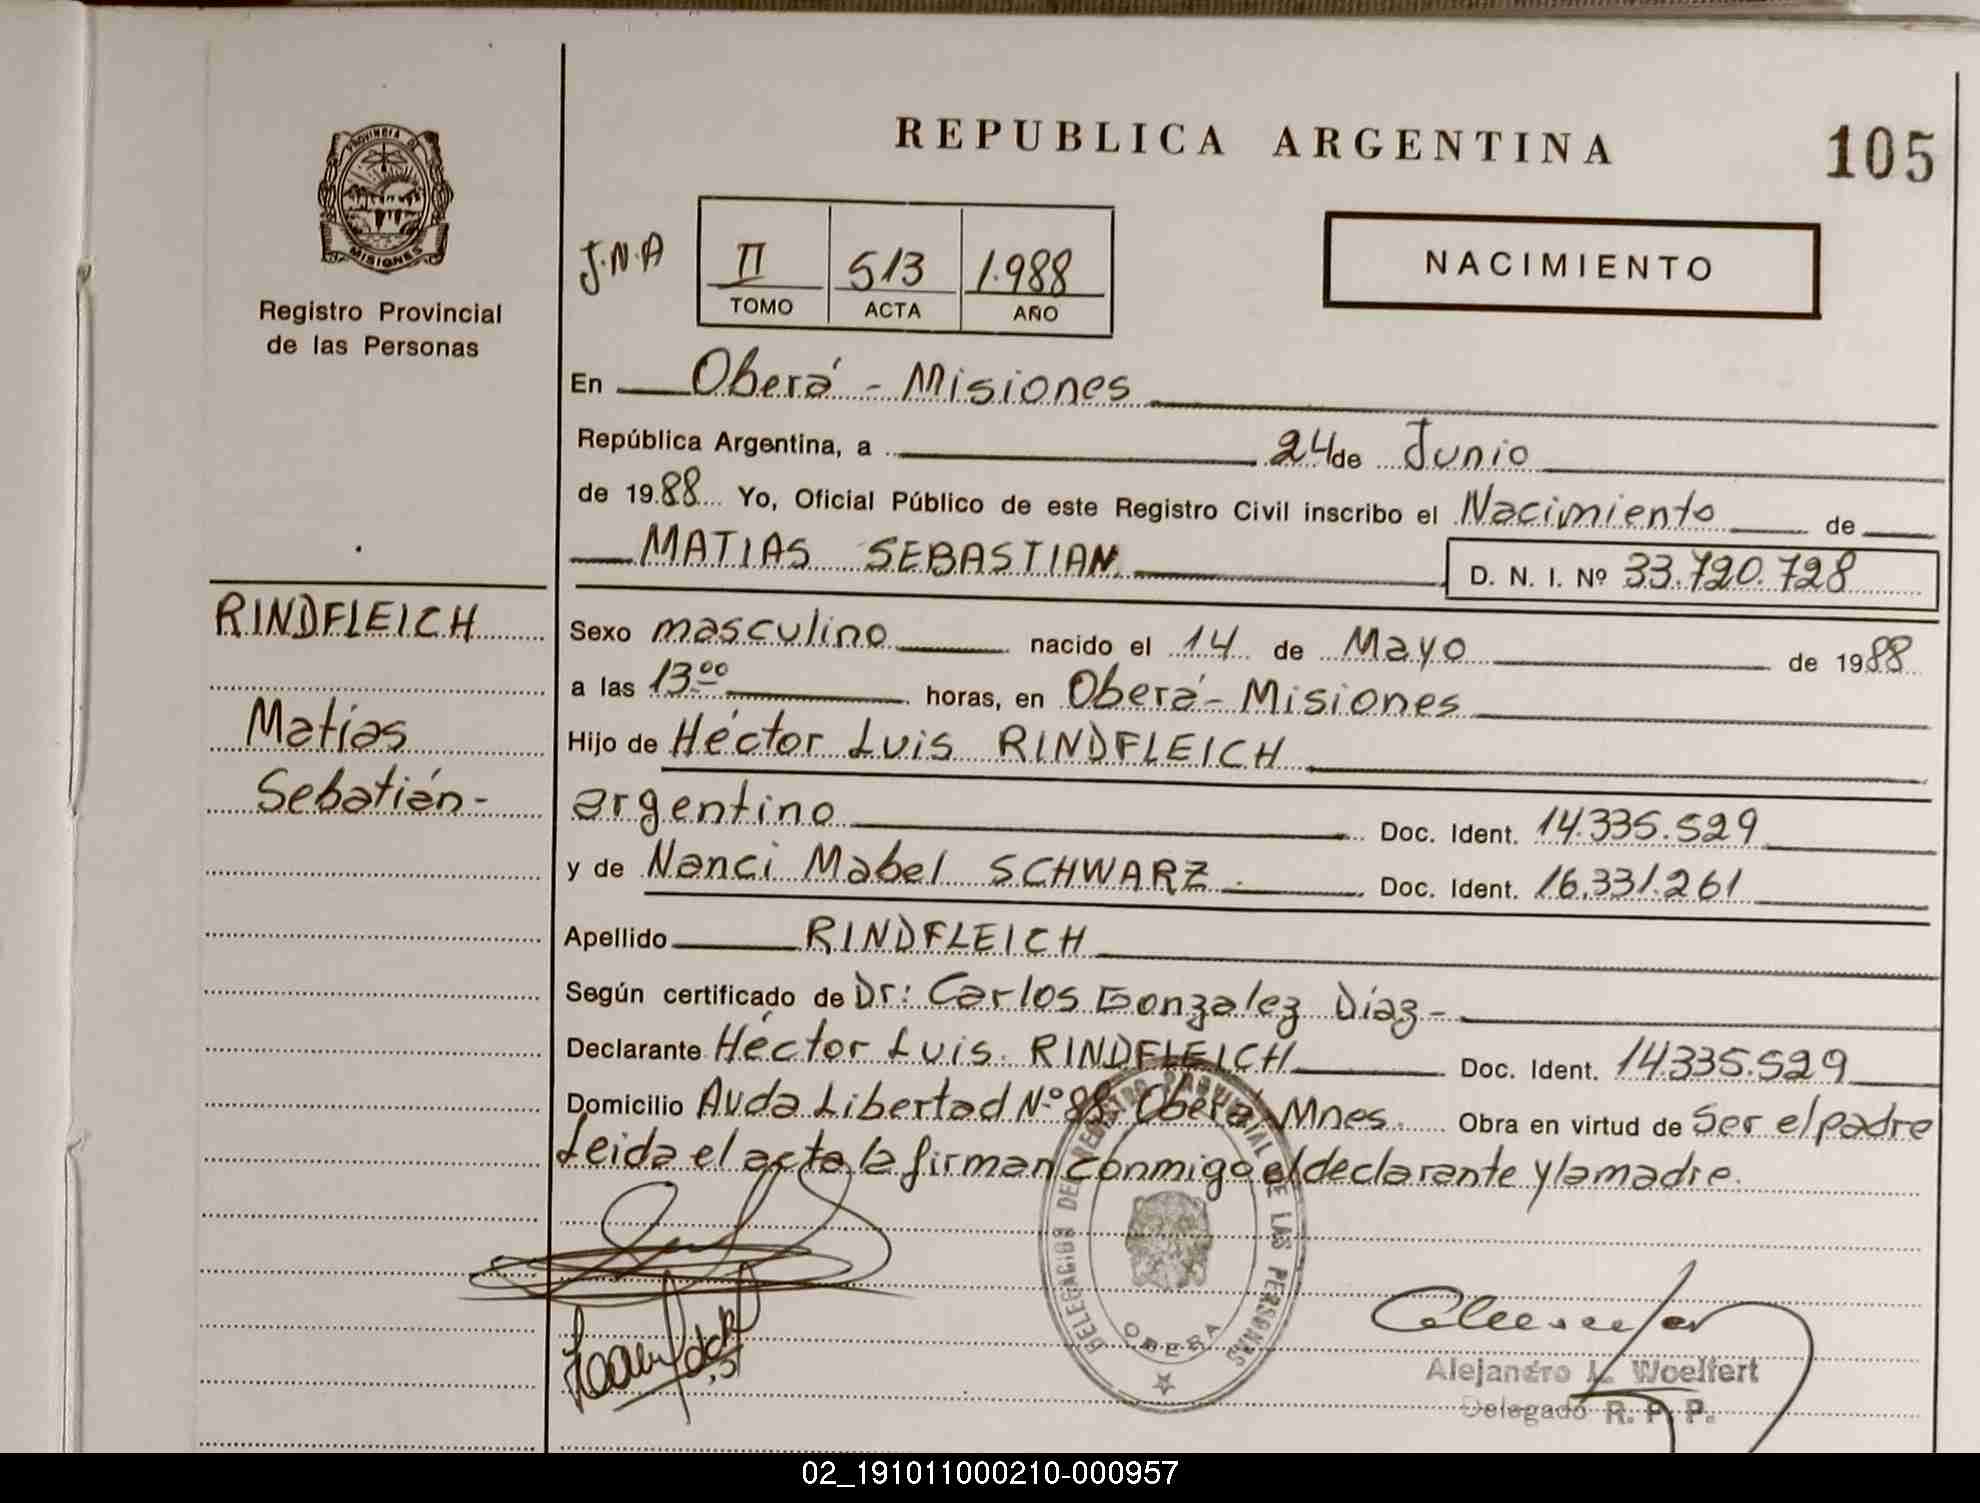 REPUBLICA ARGENTINA
105
PROVINCIA DE
MISIONES
Registro Provincial
de las Personas
J.N.A
II 513 1.988
TOMO ACTA AÑO
NACIMIENTO
En Oberá - Misiones
República Argentina, a 24 de Junio
de 1988 Yo, Oficial Público de este Registro Civil inscribo el Nacimiento de
MATIAS SEBASTIAN D. N. I. Nº 33.720.728
RINDFLEICH
Matías
Sebatián-
Sexo masculino nacido el 14 de Mayo de 1988
a las 13.00 horas, en Oberá - Misiones
Hijo de Héctor Luis RINDFLEICH
argentino Doc. Ident. 14.335.529
y de Nanci Mabel SCHWARZ Doc. Ident. 16.331.261
Apellido RINDFLEICH
Según certificado de Dr: Carlos Gonzalez Díaz-
Declarante Héctor Luis RINDFLEICH Doc. Ident. 14.335.529
Domicilio Avda Libertad N.º 88 Oberá Mnes. Obra en virtud de Ser el padre
Leida el acta la firman conmigo el declarante y la madre.
DELEGACION DEL REGISTRO DE LAS PERSONAS
OBERA
Alejandro L. Woelfert
Delegado R. P. P.
02_191011000210-000957